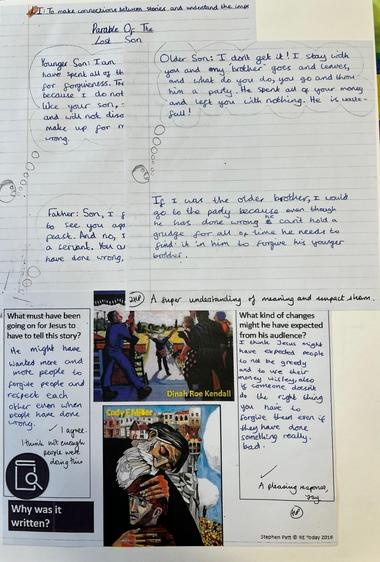 LI: To make connections between stories and understand the
Parable Of The
Lost Son
Younger Son: I am
have spent all of th
for forgiveness. The
because I do not
like your son,
and will not
make up for
wrong.
Older Son: I don't get it! I stay with
you and my brother goes and leaves,
and what do you do, you go and throw
him a party. He spent all of your money
and left you with nothing. He is waste-
full!
Father: Son, I
to see you aga
peace. And no, I
a servant. You a
have done wrong,
If I was the older brother, I would
go to the party because even though
he has done wrong he can't hold a
grudge for all of time he needs to
find it in him to forgive his younger
brother.
A super understanding of meaning and impact
What must have been
going on for Jesus to
have to tell this story?
He might have
wanted more and
more people to
forgive people and
respect each
other even when
people have done
wrong.
I agree.
I think not enough
people were
doing this
Why was it
written?
Dinah Roe Kendall
Cody F Miller
What kind of changes
might he have expected
from his audience?
I think Jesus might
have expected people
to not be greedy
and to use their
money wisley, also
if someone doesn't
do the right thing
you have to
forgive them even if
they have done
something really
bad.
A pleasing response,
Stephen Pett © RE Today 2018